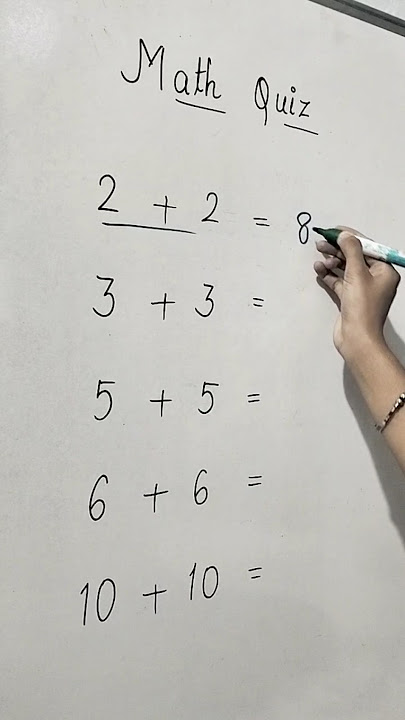 Math Quiz
2 + 2 = 8
3 + 3 =
5 + 5 =
6 + 6 =
10 + 10 =